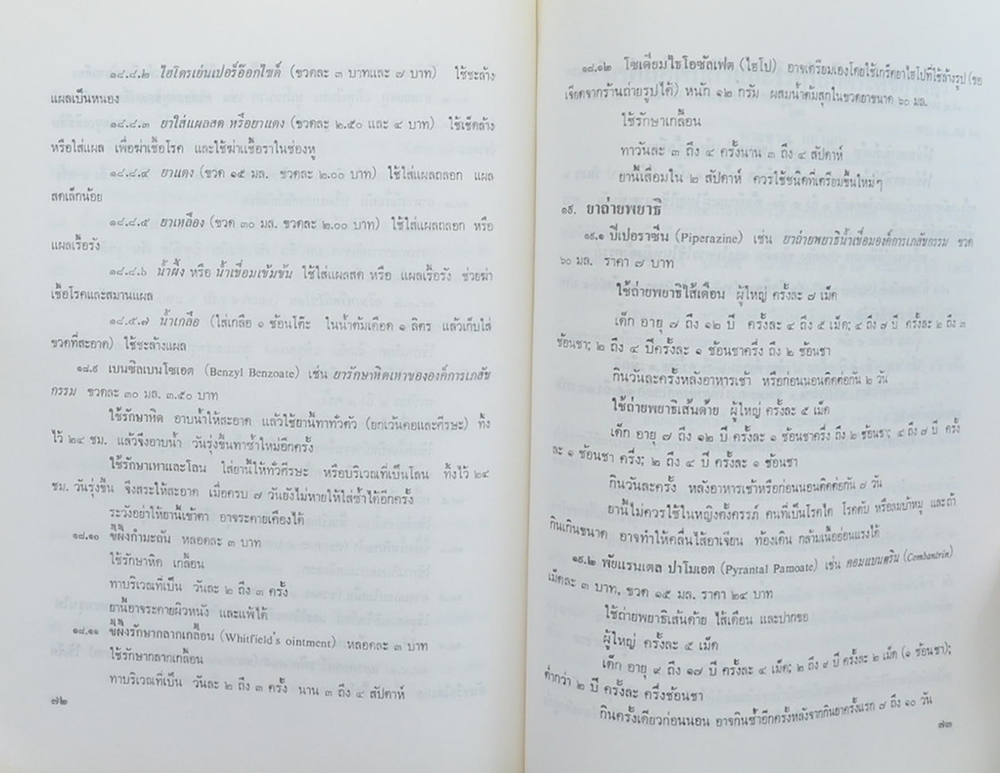 ๑๘.๘.๒ ไฮโดรเย่นเปอร์อ๊อกไซด์ (ขวดละ ๓ บาทและ ๗ บาท) ใช้ชะล้าง
แผลเป็นหนอง
๑๘.๘.๓ ยาใส่แผลสด หรือยาแดง (ขวดละ ๒.๕๐ และ ๔ บาท) ใช้เช็ดล้าง
หรือใส่แผล เพื่อฆ่าเชื้อโรค และใช้ฆ่าเชื้อราในช่องหู
๑๘.๘.๔ ยาแดง (ขวด ๑๕ มล. ขวดละ ๒.๐๐ บาท) ใช้ใส่แผลถลอก แผล
สดเล็กน้อย
๑๘.๘.๕ ยาเหลือง (ขวด ๓๐ มล. ขวดละ ๒.๐๐ บาท) ใช้ใส่แผลถลอก หรือ
แผลเรื้อรัง
๑๘.๘.๖ น้ำผึ้ง หรือ น้ำเชื่อมเข้มข้น ใช้ใส่แผลสด หรือ แผลเรื้อรัง ช่วยฆ่า
เชื้อโรคและสมานแผล
๑๘.๕.๗ น้ำเกลือ (ใส่เกลือ ๑ ช้อนโต๊ะ ในน้ำต้มเดือด ๑ ลิตร แล้วเก็บใส่
ขวดที่สะอาด) ใช้ชะล้างแผล
๑๘.๙ เบนซิลเบนโซเอต (Benzyl Benzoate) เช่น ยารักษาหิดเหาขององค์การเภสัช
กรรม ขวดละ ๓๐ มล. ๓.๕๐ บาท
ใช้รักษาหิด อาบน้ำให้สะอาด แล้วใช้ยานี้ทาทั่วตัว (ยกเว้นคอและศีรษะ) ทิ้ง
ไว้ ๒๔ ชม. แล้วจึงอาบน้ำ วันรุ่งขึ้นทาซ้ำใหม่อีกครั้ง
ใช้รักษาเหาและโลน ใส่ยานี้ให้ทั่วศีรษะ หรือบริเวณที่เป็นโลน ทิ้งไว้ ๒๔
ชม. วันรุ่งขึ้น จึงสระให้สะอาด เมื่อครบ ๗ วันยังไม่หายให้ใส่ซ้ำได้อีกครั้ง
ระวังอย่าให้ยานี้เข้าตา อาจระคายเคืองได้
๑๘.๑๐ ขี้ผึ้งกำมะถัน หลอดละ ๓ บาท
ใช้รักษาหิด เกลื้อน
ทาบริเวณที่เป็น วันละ ๒ ถึง ๓ ครั้ง
ยานี้อาจระคายผิวหนัง และแพ้ได้
๑๘.๑๑ ขี้ผึ้งรักษากลากเกลื้อน (Whitfield's ointment) หลอดละ ๓ บาท
ใช้รักษากลากเกลื้อน
ทาบริเวณที่เป็น วันละ ๒ ถึง ๓ ครั้ง นาน ๓ ถึง ๔ สัปดาห์
๗๒
๑๘.๑๒ โซเดียมไธโอซัลเฟต (ไฮโป) อาจเตรียมเองโดยใช้เกร็ดยาไฮโปที่ใช้ล้างรูป (ขอ
เจียดจากร้านถ่ายรูปได้) หนัก ๑๒ กรัม ผสมน้ำต้มสุกในขวดยาขนาด ๖๐ มล.
ใช้รักษาเกลื้อน
ทาวันละ ๓ ถึง ๔ ครั้งนาน ๓ ถึง ๔ สัปดาห์
ยานี้เสื่อมใน ๒ สัปดาห์ ควรใช้ชนิดที่เตรียมขึ้นใหม่ๆ
๑๙. ยาถ่ายพยาธิ
๑๙.๑ ปิเปอราซีน (Piperazine) เช่น ยาถ่ายพยาธิน้ำเชื่อมองค์การเภสัชกรรม ขวด
๖๐ มล. ราคา ๗ บาท
ใช้ถ่ายพยาธิไส้เดือน ผู้ใหญ่ ครั้งละ ๗ เม็ด
เด็ก อายุ ๗ ถึง ๑๒ ปี ครั้งละ ๔ ถึง ๕ เม็ด; ๔ ถึง ๗ ปี ครั้งละ ๒ ถึง ๓
ช้อนชา; ๒ ถึง ๔ ปีครั้งละ ๑ ช้อนชาครึ่ง ถึง ๒ ช้อนชา
กินวันละครั้งหลังอาหารเช้า หรือก่อนนอนติดต่อกัน ๒ วัน
ใช้ถ่ายพยาธิเส้นด้าย ผู้ใหญ่ ครั้งละ ๕ เม็ด
เด็ก อายุ ๗ ถึง ๑๒ ปี ครั้งละ ๑ ช้อนชาครึ่ง ถึง ๒ ช้อนชา; ๔ ถึง ๗ ปี ครั้ง
ละ ๑ ช้อนชา ครึ่ง; ๒ ถึง ๔ ปี ครั้งละ ๑ ช้อนชา
กินวันละครั้ง หลังอาหารเช้าหรือก่อนนอนติดต่อกัน ๗ วัน
ยานี้ไม่ควรใช้ในหญิงตั้งครรภ์ คนที่เป็นโรคไต โรคตับ หรือลมบ้าหมู และถ้า
กินเกินขนาด อาจทำให้คลื่นไส้อาเจียน ท้องเดิน กล้ามเนื้ออ่อนแรงได้
๑๙.๒ พัยแรนเตล ปาโมเอต (Pyrantal Pamoate) เช่น คอมแบนตริน (Combantrin)
เม็ดละ ๓ บาท, ขวด ๑๕ มล. ราคา ๒๔ บาท
ใช้ถ่ายพยาธิเส้นด้าย ไส้เดือน และปากขอ
ผู้ใหญ่ ครั้งละ ๕ เม็ด
เด็ก อายุ ๙ ถึง ๑๗ ปี ครั้งละ ๔ เม็ด; ๒ ถึง ๙ ปี ครั้งละ ๒ เม็ด (๑ ช้อนชา);
ต่ำกว่า ๒ ปี ครั้งละ ครึ่งช้อนชา
กินครั้งเดียวก่อนนอน อาจกินซ้ำอีกครั้งหลังจากกินยาครั้งแรก ๗ ถึง ๑๐ วัน
๗๓